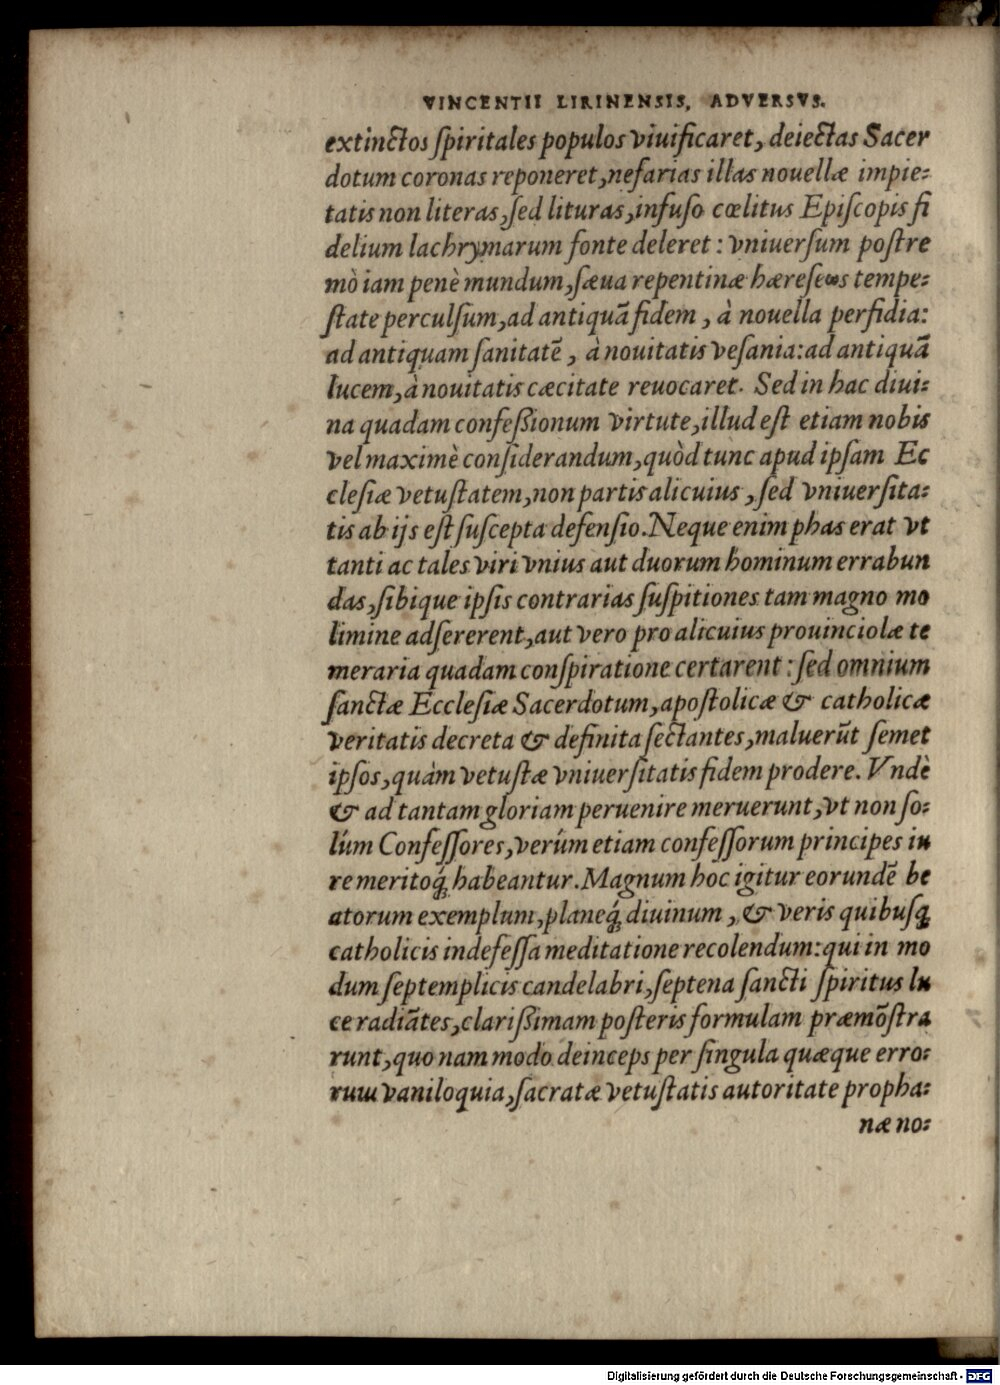 VINCENTII LIRINENSIS, ADVERSVS.
extinctos ſpiritales populos viuificaret, deiectas Sacer
dotum coronas reponeret, nefarias illas nouellæ impie⸗
tatis non literas, ſed lituras, infuſo cœlitus Epiſcopis fi
delium lachrymarum fonte deleret : vniuerſum poſtre
mò iam penè mundum, ſæua repentinæ hæreſeως tempe⸗
ſtate perculſum, ad antiquã fidem , à nouella perfidia:
ad antiquam ſanitatẽ , à nouitatis veſania: ad antiquã
lucem, à nouitatis cæcitate reuocaret. Sed in hac diui⸗
na quadam confeßionum virtute, illud eſt etiam nobis
vel maximè conſiderandum, quòd tunc apud ipſam Ec
cleſiæ vetuſtatem, non partis alicuius , ſed vniuerſita⸗
tis ab ijs eſt ſuſcepta defenſio. Neque enim phas erat vt
tanti ac tales viri vnius aut duorum hominum errabun
das, ſibique ipſis contrarias ſuſpitiones tam magno mo
limine adſererent, aut vero pro alicuius prouinciolæ te
meraria quadam conſpiratione certarent : ſed omnium
ſanctæ Eccleſiæ Sacerdotum, apoſtolicæ & catholicæ
veritatis decreta & definita ſectantes, maluerũt ſemet
ipſos, quàm vetuſtæ vniuerſitatis fidem prodere. Vndè
& ad tantam gloriam peruenire meruerunt, vt non ſo⸗
lúm Confeſſores, verúm etiam confeſſorum principes iu
re meritoq́ꝫ habeantur. Magnum hoc igitur eorundẽ be
atorum exemplum, planeq́ꝫ diuinum , & veris quibuſqꝫ
catholicis indefeſſa meditatione recolendum: qui in mo
dum ſeptemplicis candelabri, ſeptena ſancti ſpiritus lu
ce radiãtes, clarißimam poſteris formulam præmõſtra
runt, quo nam modo deinceps per ſingula quæque erro⸗
rum vaniloquia, ſacratæ vetuſtatis autoritate propha⸗
næ no⸗
Digitalisierung gefördert durch die Deutsche Forschungsgemeinschaft - DFG